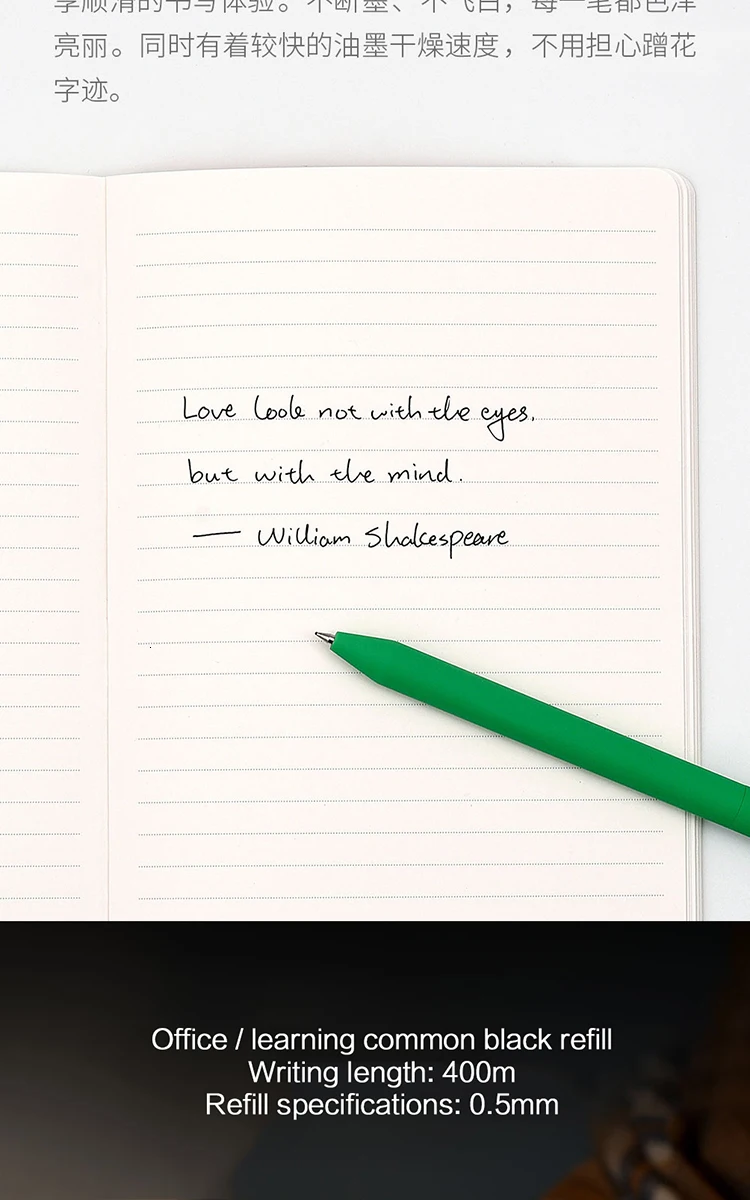 享顺滑的书写体验。不断墨、不飞白，每一笔都色泽
亮丽。同时有着较快的油墨干燥速度，不用担心蹭花
字迹。
Love look not with the eyes,
but with the mind.
— William Shakespeare
Office / learning common black refill
Writing length: 400m
Refill specifications: 0.5mm